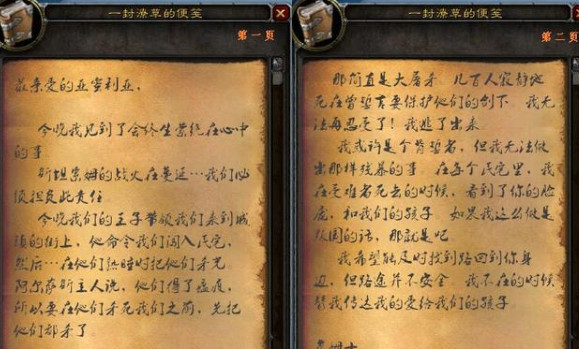 一封潦草的便笺
第一页
最亲爱的亚蜜利亚,
今晚我见到了会终生萦绕在心中
的事
斯坦索姆的战火在蔓延…我们必
须担负此责任.
今晚我们的王子带领我们来到城
镇的街上,他命令我们闯入民宅,
然后…在他们熟睡时把他们杀光
阿尔萨斯主人说,他们得了瘟疫,
所以要在他们杀死我们之前,先把
他们都杀了
一封潦草的便笺
第二页
那简直是大屠杀.几百人寂静地
死在曾誓言要保护他们的剑下.我无
法再忍受了!我逃了出来.
我或许是个背誓者,但我无法做
出那样残暴的事.在每个民宅里,我
在受难者死去的时候,看到了你的脸
庞,和我们的孩子.如果我这么做是
叛国的话,那就是吧.
我希望能及时找到路回到你身
边,但路途并不安全.我不在的时候
替我传达我的爱给我们的孩子.